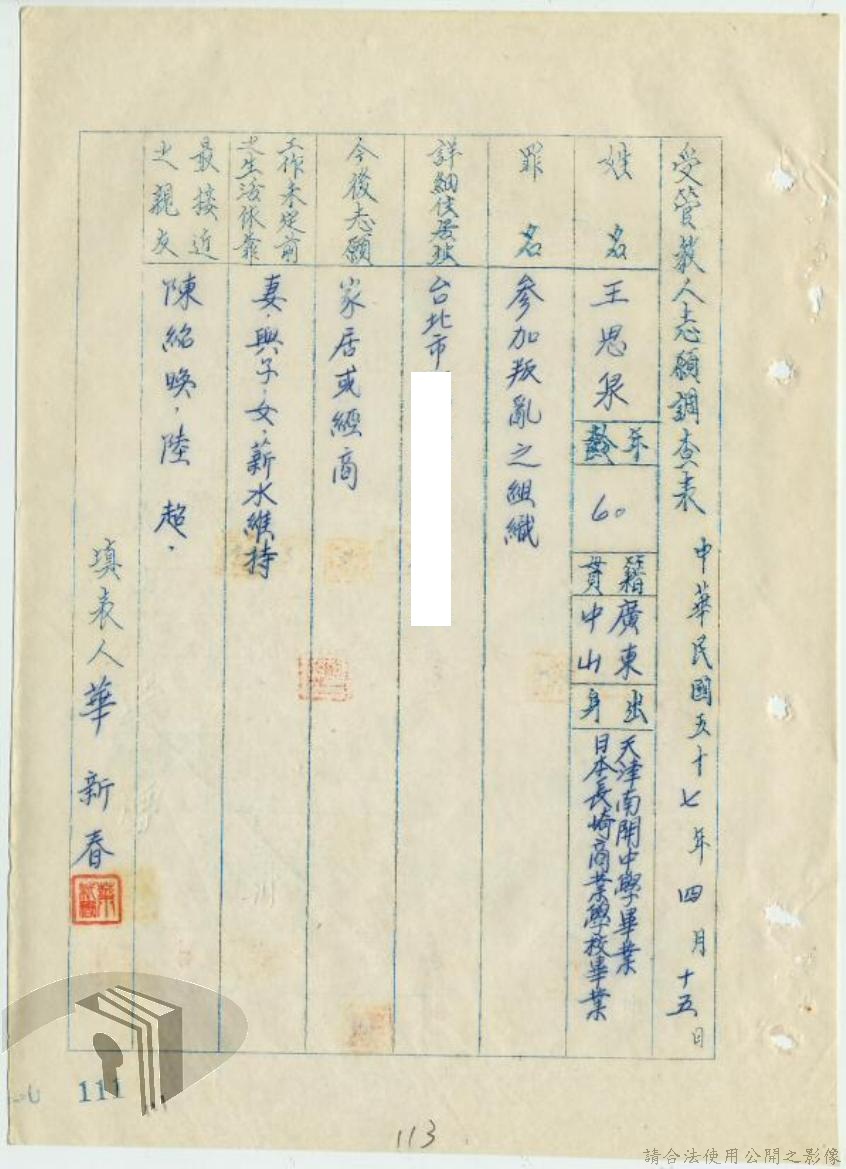 受管教人志願調查表 中華民國五十七年四月十五日
姓名 王思泉 年齡 60 籍貫 廣東中山 出身 天津南開中學畢業
日本長崎商業學校畢業
罪名 參加叛亂之組織
詳細住居址 台北市
今後志願 家居或經商
工作未定前之生活依靠 妻.與子.女.薪水維持
最接近之親友 陳紹喚.陸超.
填表人 華新春
111
113
請合法使用公開之影像